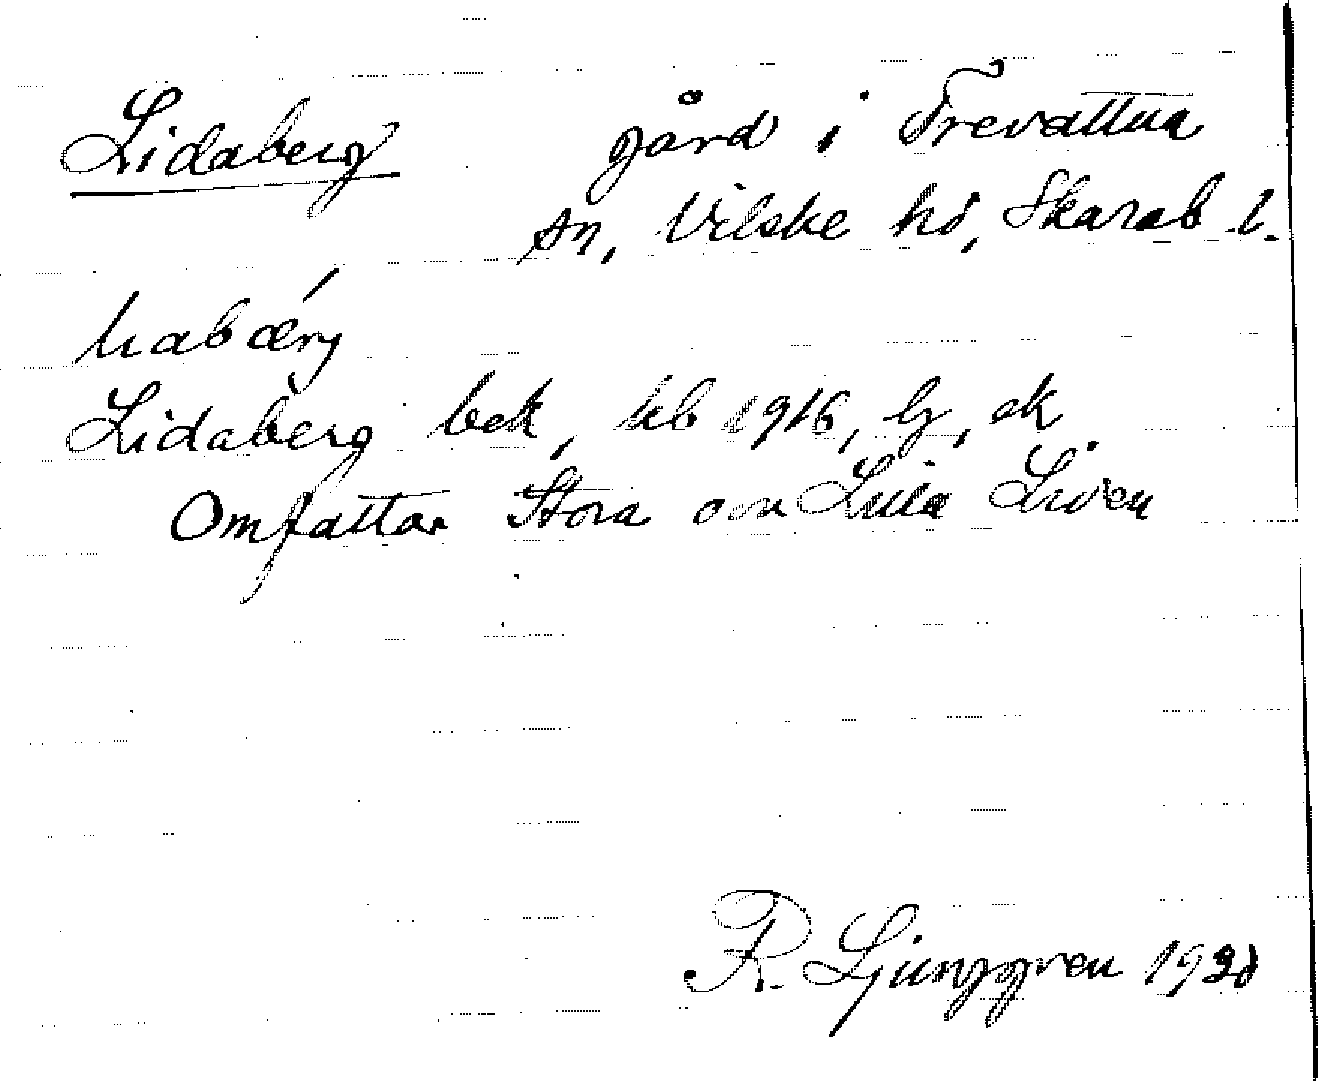 Lidaberg gård i Trevattna
sn, Vilske hd, Skarab l.
Lidaberg bek, kb 1916, lz, ek
Omfattar Stora och Lilla
R. Ljunggren